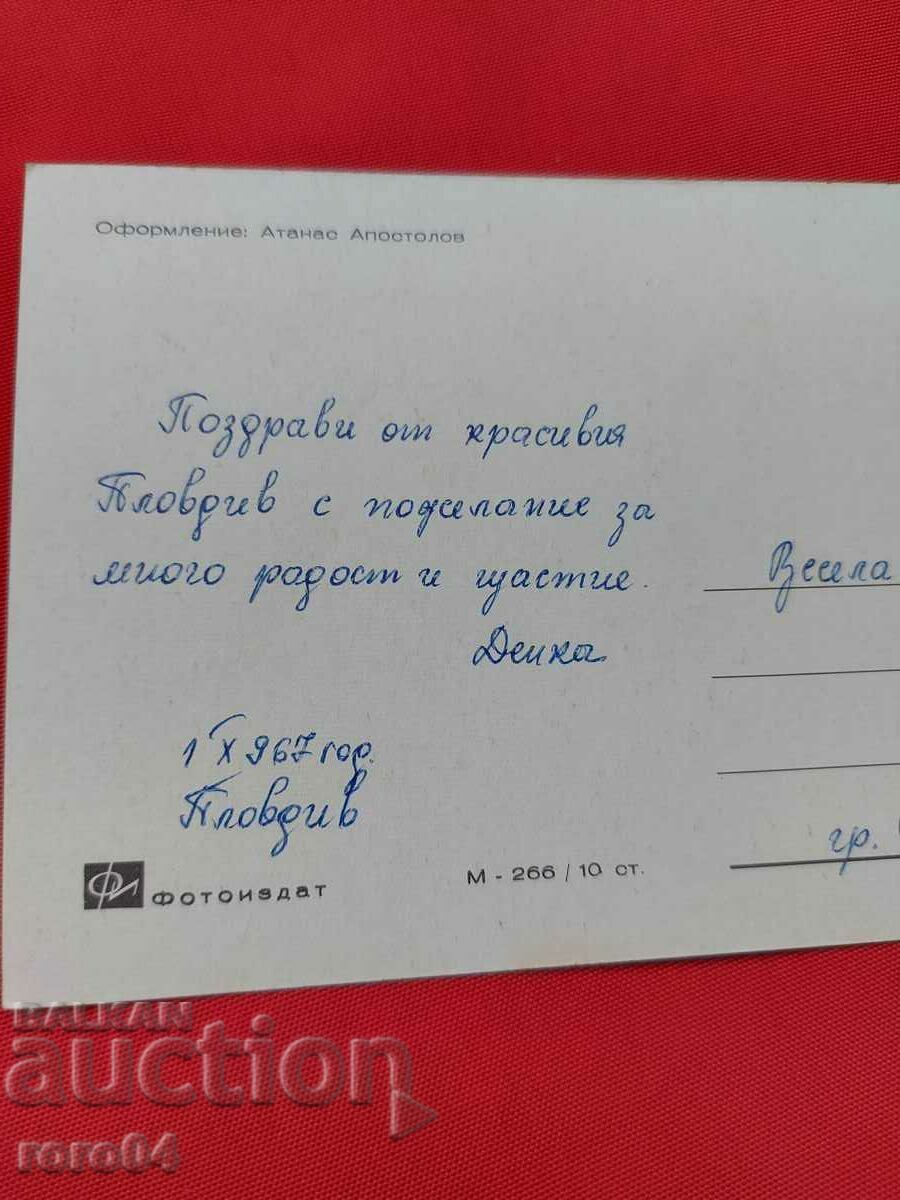 Оформление: Атанас Апостолов
Поздрави от красивия
Пловдив с пожелание за
много радост и щастие.
Денка
1 X 967 год.
Пловдив
ФИ ФОТОИЗДАТ
М - 266 / 10 ст.
Весела
гр.
BALKAN
auction
roro04